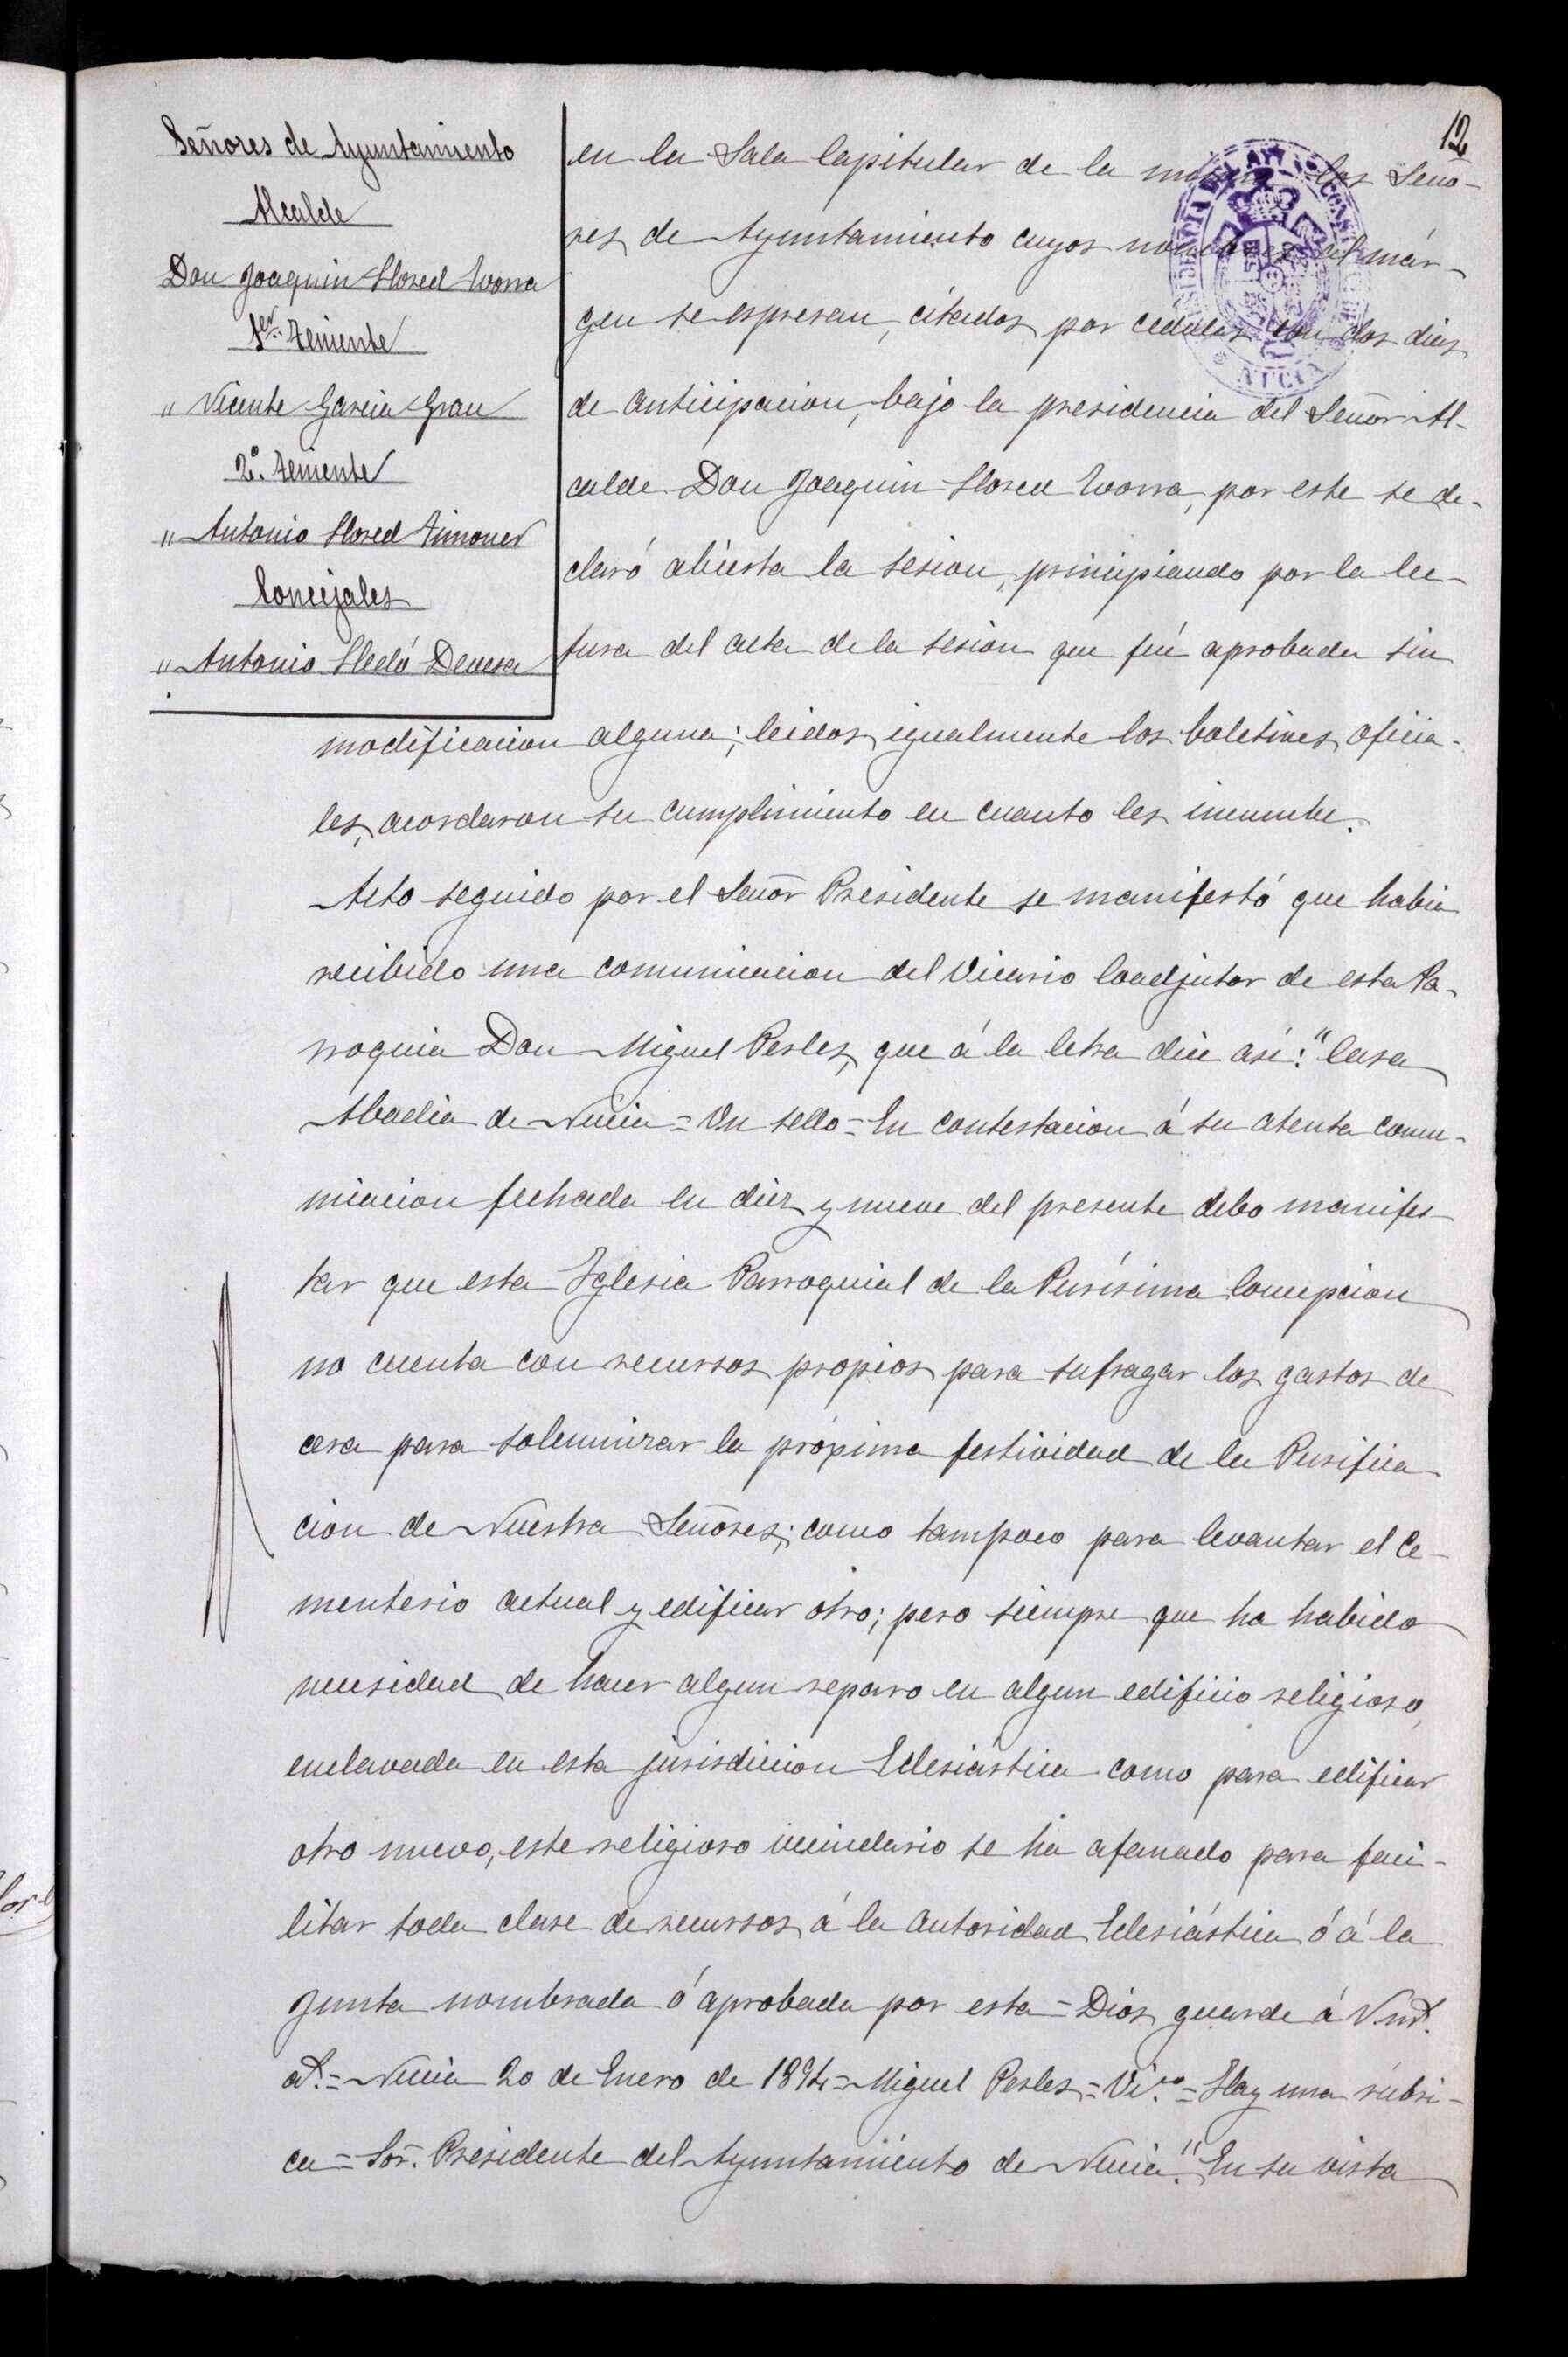 12
Señores de Ayuntamiento
Alcalde
Don Joaquin Llored Lvorra
1er. Teniente
" Vicente Garcia Grau
2º. Teniente
" Antonio Llored Timoner
Concejales
" Antonio Lledó Devesa
en la Sala Capitular de la misma los Seño-
res de Ayuntamiento cuyos nombres al már-
gen se espresan, citados por cedulas con dos dias
de anticipacion, bajo la presidencia del Señor Al-
calde Don Joaquin Llored Lvorra, por este se de-
claró abierta la sesion, principiando por la lec-
tura del acta de la sesion que fué aprobada sin
modificacion alguna; leidos igualmente los boletines oficia-
les, acordaron su cumplimiento en cuanto les incumbe.
Acto seguido por el Señor Presidente se manifestó que habia
recibido una comunicacion del Vicario Coadjutor de esta Pa-
rroquia Don Miguel Perles, que á la letra dice asi: "Casa
Abadia de Nucia = Un sello = En contestacion á su atenta comu-
nicacion fechada en diez y nueve del presente debo manifes-
tar que esta Iglesia Parroquial de la Purísima Concepcion
no cuenta con recursos propios para sufragar los gastos de
cera para solemnizar la próxima festividad de la Purifica-
cion de Nuestra Señores; como tampoco para levantar el Ce-
menterio actual y edificar otro; pero siempre que ha habido
necesidad de hacer algun reparo en algun edificio religioso,
enclavada en esta jurisdiccion Eclesiástica como para edificar
otro nuevo, este religioso vecindario se ha afanado para faci-
litar toda clase de recursos á la autoridad Eclesiástica ó á la
Junta nombrada ó aprobada por esta = Dios guarde á V. md.
ad. = Nucia 20 de Enero de 1894 = Miguel Perles = Vi.º = Hay una rúbri-
ca = Sor. Presidente del Ayuntamiento de Nucia." En su vista